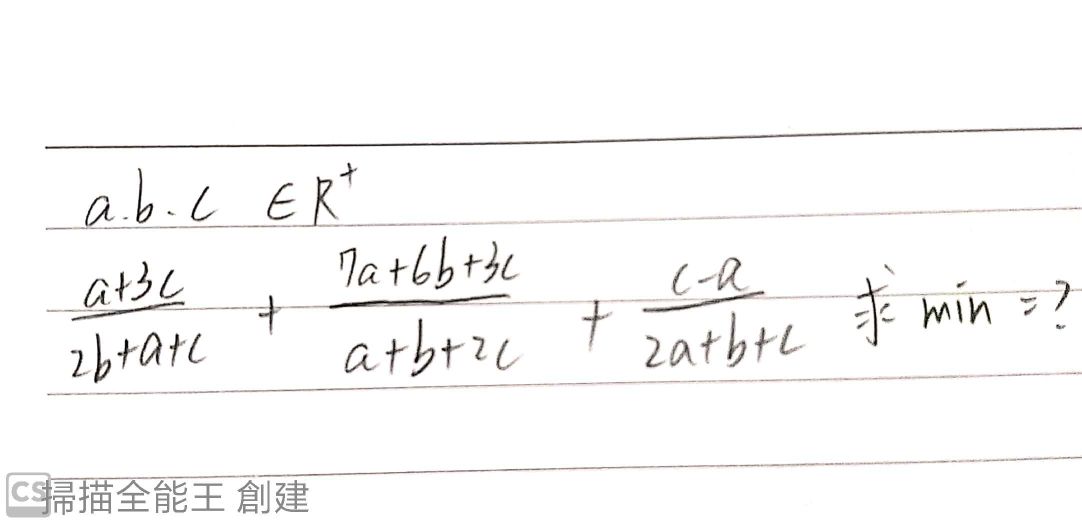 a.b.c ∈ R⁺
(a+3c)/(2b+a+c) + (7a+6b+3c)/(a+b+2c) + (c-a)/(2a+b+c) 求 min =?
CS掃描全能王 創建